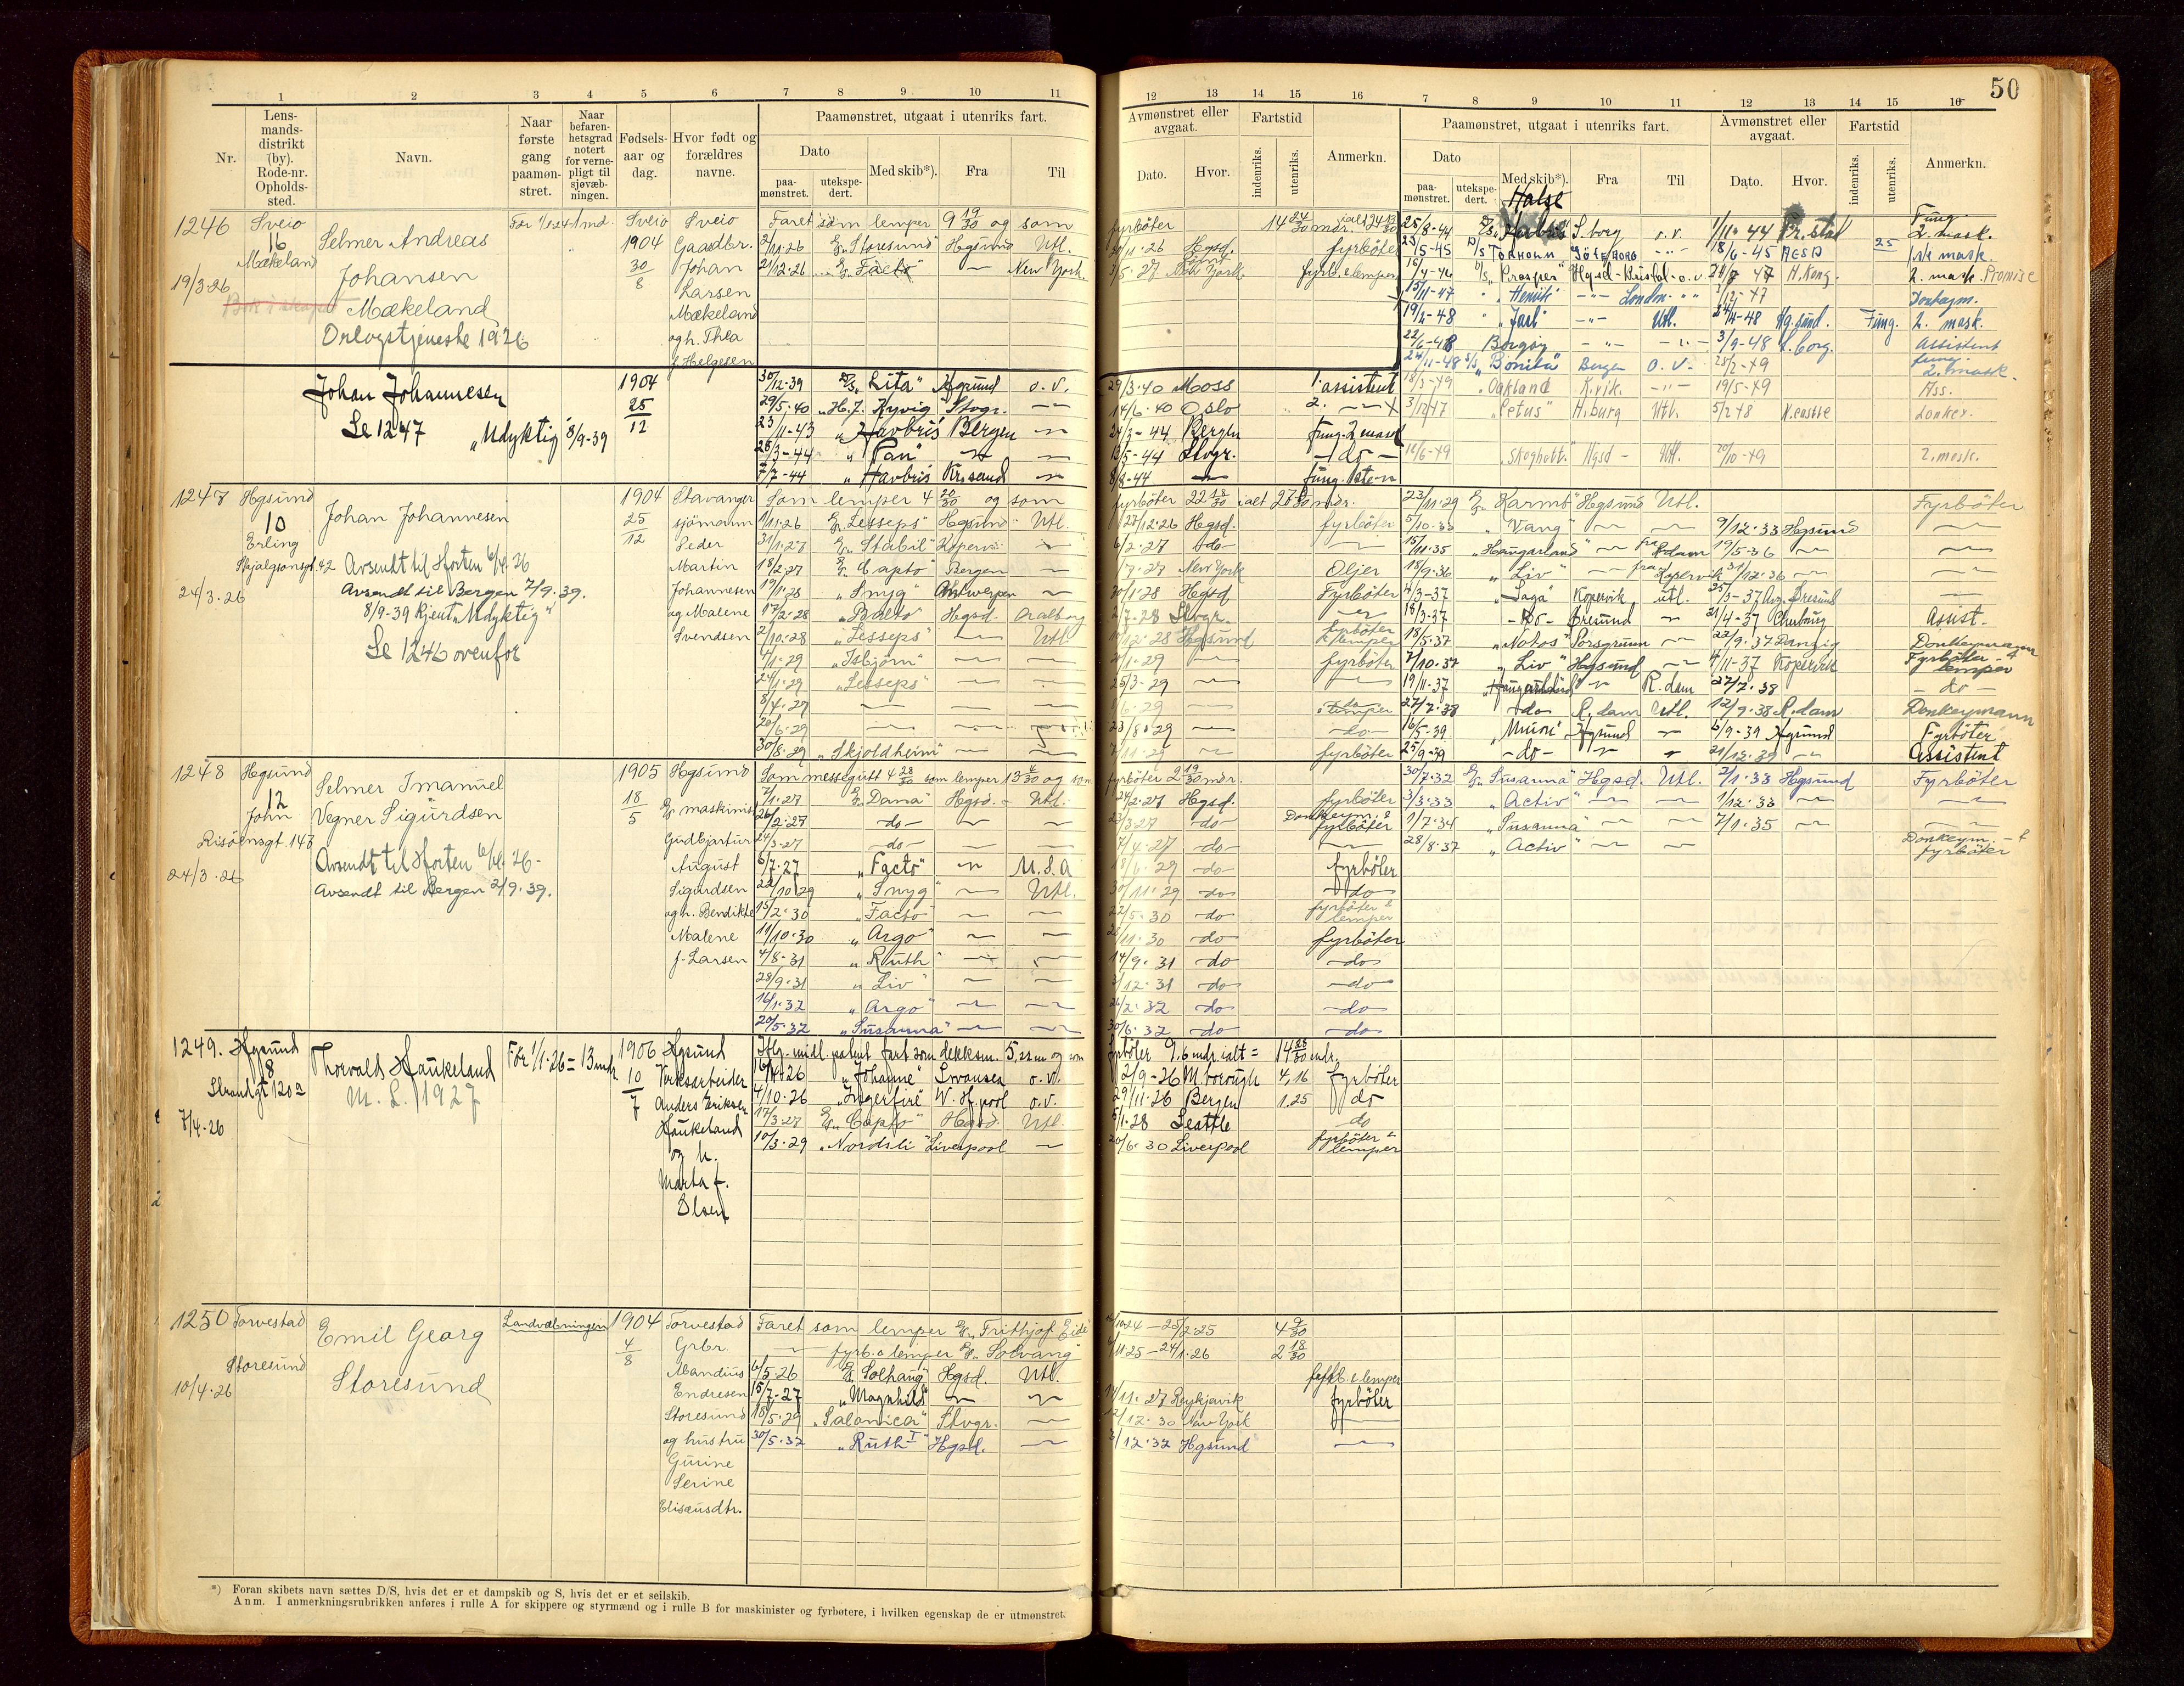 50
1 2 3 4 5 6 7 8 9 10 11
Nr.
Lensmandsdistrikt (by). Rode-nr. Opholdssted.
Navn.
Naar første gang paamønstret.
Naar befarenhetsgrad notert for vernepligt til sjøvæbningen.
Fødselsaar og dag.
Hvor født og forældres navne.
Paamønstret, utgaat i utenriks fart.
Dato
paamønstret. utekspedert.
Med skib*). Fra Til
12 13 14 15 16 7 8 9 10 11 12 13 14 15 16
Avmønstret eller avgaat.
Dato. Hvor.
Fartstid
indenriks. utenriks.
Anmerkn.
Paamønstret, utgaat i utenriks fart.
Dato
paamønstret. utekspedert.
Med skib*). Fra Til
Avmønstret eller avgaat.
Dato. Hvor.
Fartstid
indenriks. utenriks.
Anmerkn.
1246 Sveio
16
Mækeland
19/3-26
Selmer Andreas
Johansen
Mækeland
Orlogstjeneste 1926
Sveio
1904
30
8
Sveio
Gaardbr.
Johan
Larsen
Mækeland
og h. Thea
f. Helgesen
Faret som lemper 9 19/30 og som
2/11-26 "Storesund" Hegsund Utl.
21/12-26 "Facto" — New York
fyrbøter 14 24/30 mdr.
Hgsd. fyrbøter
New York fyrb. & lemper
Halse
25/8-44 S.borg o.v. 1/11-44 Fr.stad Fung. 2. mask.
23/5-45 D/S TORHOLM GÖTEBORG 18/6-45 25 1ste mask.
16/4-46 "Prosper" Hgsd - Bristol - o.v. H.Kong. 2. mask. Promise
15/11-47 "Henrik" London
19/2-48 "Jarl" Utl. 24/4-48 Hg.sund. Fung. 2. mask.
22/6-48 Borgny 3/9-48 S.borg. Assistent
24/11-48 "Bonita" Bergen O.V. 28/2-49 fung. 2. mask.
18/3-49 "Oakland" K.vik. 19/5-49 Ass.
3/12 47 "Cetus" H.burg Utl. 5/2 48 N.castle Donkey.
10/6-49 "Skogholt" Hgsd - Utl. 20/10-49 2. mask.
Johan Johannesen
Se 1247 "Udyktig" 8/9-39
1904
25
12
30/12-39 "Lita" Hgsund o.v.
29/5-40 "H.J. Kyvig" Stvgr. —
23/11-43 "Havbris" Bergen —
28/3-44 "Pan" —
7/7-44 "Havbris" Kr.sand —
29/3-40 Moss 1. assistent
14/6-40 Oslo 2. —
24/3-44 Bergen Fung. 2 mask
13/5-44 Stvgr. — do —
8/8-44 — fung. 1ste m
1247 Hgsund
10
Erling
Skjalgsonsgt. 42
24/3-26
Johan Johannesen
Avsendt til Horten 6/4-26
Avsendt til Bergen 7/9-39.
8/9-39 Kjent "Udyktig"
Se 1246 ovenfor
1904
25
12
Stavanger
sjømann
Peder
Martin
Johannesen
og Malene
Svendsen
Som lemper 4 26/30 og som
1/11-26 "Lesseps" Hegsund - Utl.
31/1-27 "Stabil" Kopervik —
18/2-27 "Capto" Bergen —
19/1-28 "Snyg" Antwerpen —
17/2-28 "Bolets" Hegsd. Aalborg
2/10-28 "Lesseps" — Utl
4/1-29 "Isbjørn" — —
24/1-29 "Lesseps" — —
8/4-29 — — —
20/6-29 — — —
30/8-29 "Skjoldheim" — —
fyrbøter 22 18/30 ialt 27 mdr.
22/12-26 Hegsd. fyrbøter
6/2-27 do —
New York Oljer
30/1-28 Hegsd Fyrbøter
Stvgr. —
Hegsund fyrbøter & lemper
— fyrbøter
25/3-29 — —
6-29 — lemper
23/8-29 — do
7/11-29 — fyrbøter
23/11-29 "Karmt" Hegsund Utl. Fyrbøter
5/10-33 "Vang" — — 9/12-33 Hegsund —
15/11-35 "Haugarland" — fra R.dam 19/5-36 — —
18/9-36 "Liv" — fra Kopervik 31/12-36 — —
4/3-37 "Saga" Kopervik utl. Øresund —
18/3-37 — do — Øresund — 21/4-37 Assist.
18/5-37 "Notos" Porsgrunn — 22/9-37 Danzig Donkeymann
7/10-37 "Liv" Hegsund — 4/11-37 Kopervik Fyrbøter & lemper
19/11-37 "Haugarland" — R.dam 27/7-38 — do —
27/7-38 — do — R.dam Utl. 12/9-38 R.dam Donkeymann
6/5-39 "Muni" Hgsund — 6/9-39 Hgsund Fyrbøter
25/9-39 — do — — 21/12-39 — Assistent
1248 Hegsund
12
John
Risöensgt. 148
24/3-26
Selmer Imanuel
Vegner Sigurdsen
Avsendt til Horten 6/4-26-
Avsendt til Bergen 2/9-39.
1905
18
5
Hegsund
maskinist
Gudbjartur
August
Sigurdsen
og h. Bendikte
Malene
f. Larsen
Som messegutt 4 28/30 som lemper 13 4/30 og som
7/1-27 "Dana" Hegsd. - Utl.
26/2-27 — do — — —
24/3-27 — do — — —
6/7-27 "Facto" — U.S.A
22/10 29 "Snyg" — Utl.
15/2-30 "Facto" — —
11/10-30 "Argo" — —
4/8-31 "Ruth" — —
28/9-31 "Liv" — —
16/1-32 "Argo" — —
20/5-32 "Susanna" — —
fyrbøter 2 19/30 mdr.
24/2-27 Hegsd. fyrbøter
3-27 do Donkeym. & fyrbøter
7/4-27 do —
18/6-29 do fyrbøter
30/11-29 do do
22/5-30 do fyrbøter & lemper
11-30 do fyrbøter
14/9-31 do do
12-31 do do
2-32 do do
30/6-32 do do
30/7-32 "Susanna" Hegsd. Utl. 2/1-33 Hegsund Fyrbøter
3/3-33 "Activ" — — 1/12-33 — —
1/7-34 "Susanna" — — 7/1-35 —
28/8-37 "Activ" — — Donkeym. & fyrbøter
1249. Hgsund
8
Strandgt 120a
7/4-26
Thorvald Haukeland
M. L. 1927
Før 1/1-26 = 13 mdr
1906
10
7
Hgsund
Verksarbeider
Anders Eriksen
Haukeland
og h.
Marta f.
Olsen
Iflg. midl. patent fart som dekksm. 5,22 m og som
16/4-26 "Johanne" Swansea o.v.
4/10-26 "Ingerfire" W. H.pool o.v.
17/3-27 "Capto" Hegsd. Utl.
10/3-29 "Nordsli" Liverpool —
fyrbøter 9,6 mdr. ialt = 14 28/30 mdr.
2/9-26 M.borough 4,16 fyrbøter
29/11-26 Bergen 1.25 do
5/1-28 Seattle do
20/6-30 Liverpool fyrbøter & lemper
1250 Torvestad
Storesund
10/4-26
Emil Georg
Storesund
Landvæbningen
1904
4
8
Torvestad
Grbr.
Mandius
Endresen
Storesund
og hustru
Gurine
Serine
Eliseusdtr.
Faret som lemper "Frithjof Eide"
— fyrb. & lemper "Solvang"
6/5-26 "Solhaug" Hgsd. Utl.
15/7-27 "Magnhild" — —
18/5-29 "Salonica" Stvgr. —
30/5-32 "Ruth I" Hgsd. —
10-24 — 25/2-25 4 9/30
11 25 — 24/1-26 2 18/30
fyrb. & lemper
11-27 Reykjavik fyrbøter
12-30 New York —
12-32 Hgsund —
*) Foran skibets navn sættes D/S, hvis det er et dampskib og S, hvis det er et seilskib.
Anm. I anmerkningsrubrikken anføres i rulle A for skippere og styrmænd og i rulle B for maskinister og fyrbøtere, i hvilken egenskap de er utmønstret.